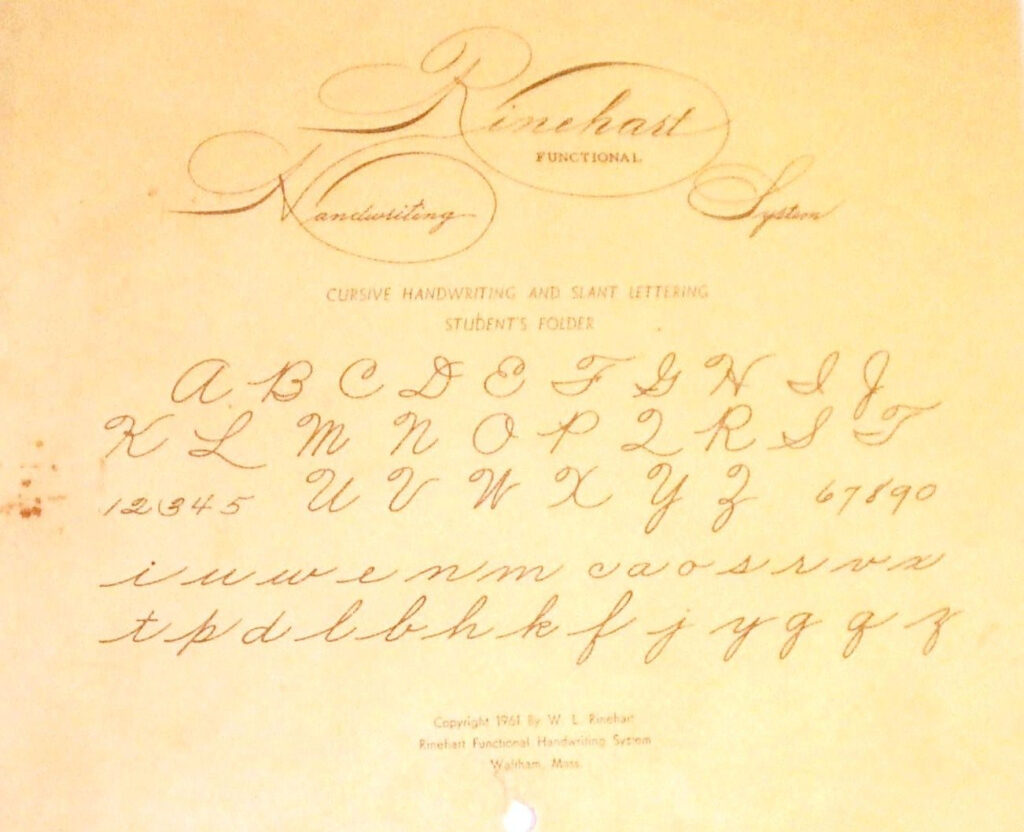 Rinehart
FUNCTIONAL
Handwriting System
CURSIVE HANDWRITING AND SLANT LETTERING
STUDENT'S FOLDER
A B C D E F G H I J
K L M N O P Q R S T
1 2 3 4 5 U V W X Y Z 6 7 8 9 0
i u w e n m c a o s r v x
t p d l b h k f j y g q z
Copyright 1961 By W. L. Rinehart
Rinehart Functional Handwriting System
Waltham, Mass.